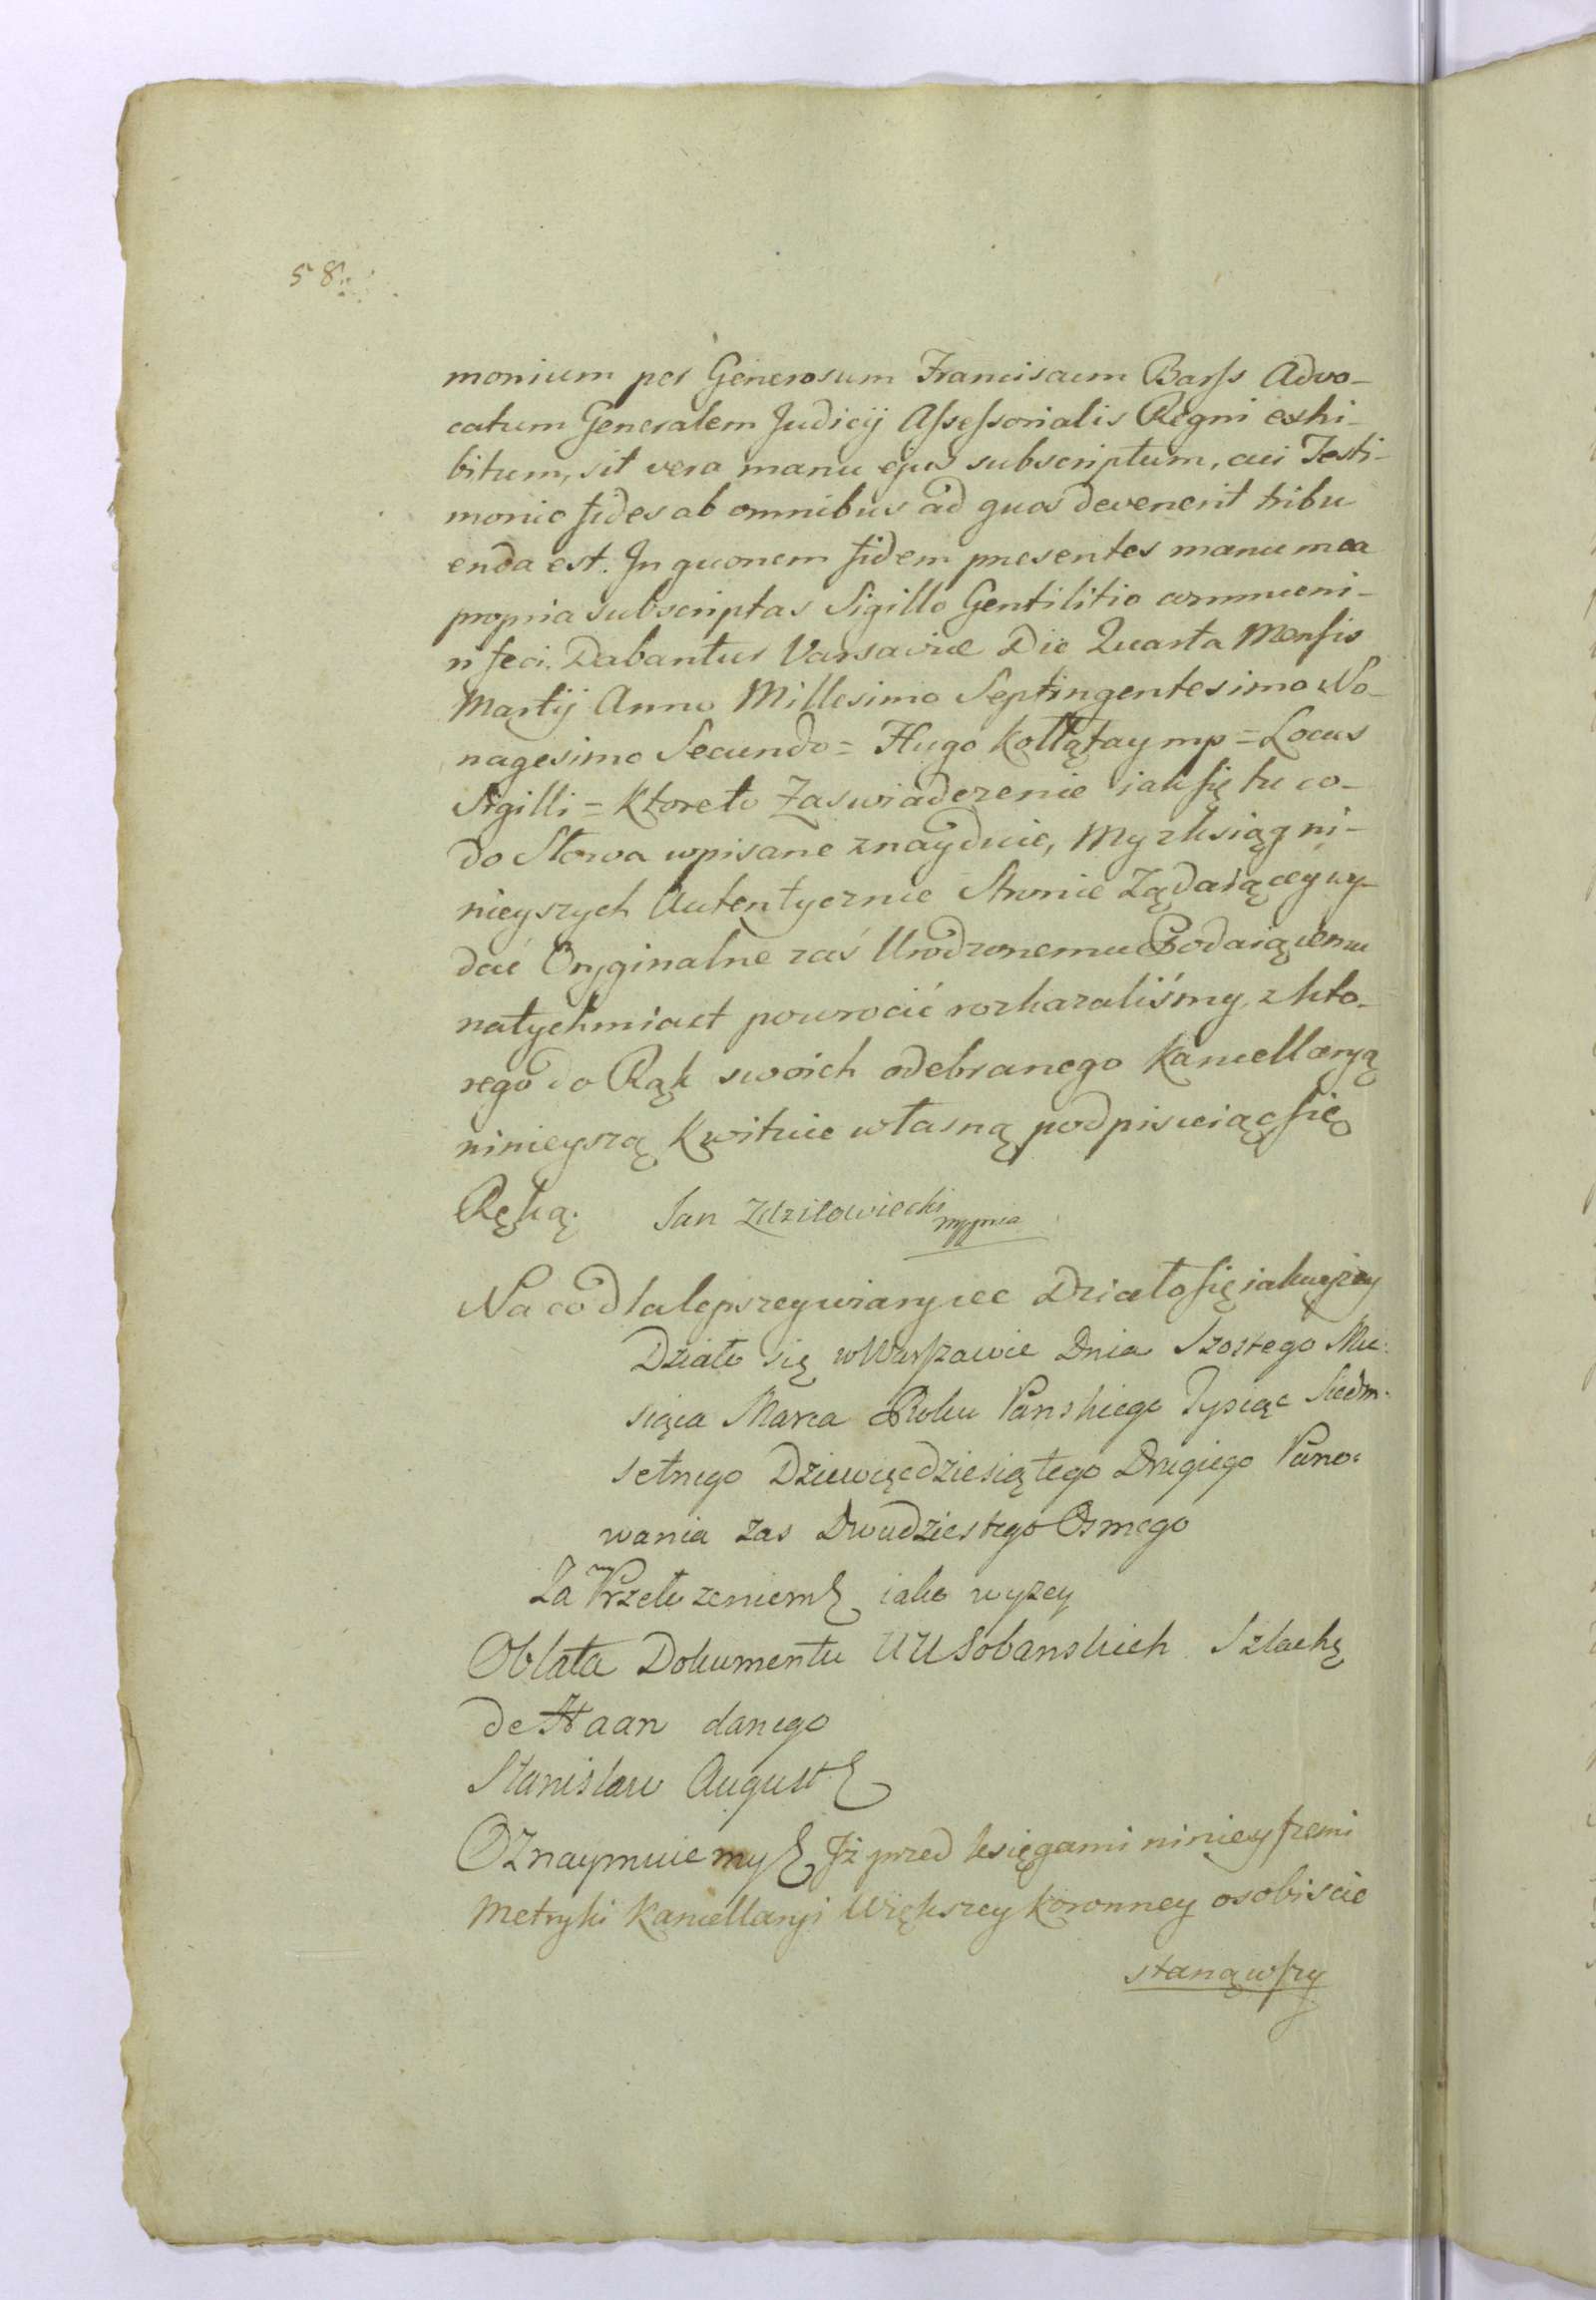 58
monium per Generosum Franciscum Barſs Advo-
catum Generalem Judicij Aſseſsorialis Regni exhi-
bitum, sit vera manu ejus subscriptum, cui Testi-
monio fides ab omnibus ad quos devenerit tribu
enda est. In quorem fidem presentes manu mea
propria subscriptas Sigillo Gentilitio communi-
ri feci. Dabantur Varsaviæ Die Quarta Menſis
Martij Anno Millesimo Septingentesimo No-
nagesimo Secundo = Hugo Kołłątay mp = Locus
Sigilli = Ktoreto Zaswiadczenie iak się tu co-
do Słowa wpisane znayduie, My z ksiąg ni-
nieyszych Autentycznie Stronie Żądaiącey wy-
dać Oryginalne zaś Urodzonemu Podaiącemu
natychmiast powrocić rozkazaliśmy, z kto-
rego do Rąk swoich odebranego Kancellaryą
ninieyszą kwituie własną podpisuiąc się
Ręką. Jan Zdziłowiecki mppria
Na co dla lepszey wiary ucc Działo się iak wyżey
Działo się w Warſzawie Dnia Szostego Mie:
siąca Marca Roku Panskiego Tysiąc Siedm-
setnego Dziewięcdziesiątego Drugiego Pano:
wania zas Dwudziestego Osmego
Za Przełozeniem iako wyzey
Oblata Dokumentu UU Sobanskich Szlachę
de Haan danego
Stanislaw August
Oznaymuiemy Iż przed księgami ninieyſzemi
Metryki Kancellaryi Większey Koronney osobiscie
stanąwſzy